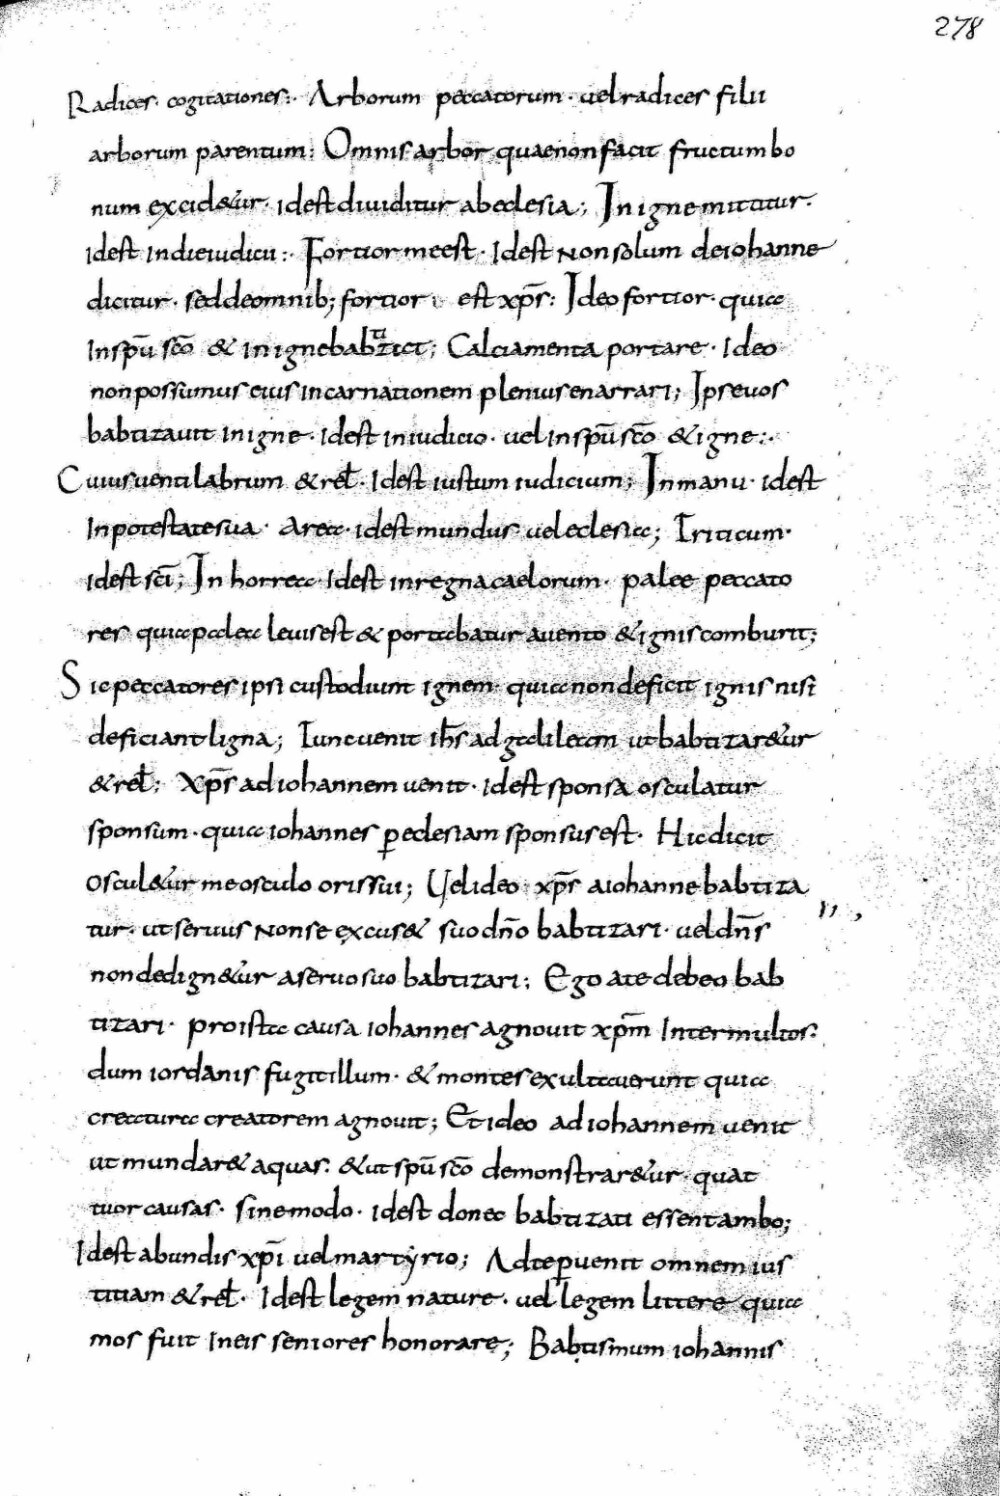 278
Radices· cogitationes:· Arborum peccatorum· uel radices filii
arborum parentum: Omnis arbor quae non facit fructum bo
num excid&ur· id est diuiditur ab eclesia; In igne mittitur·
id est in die iudicii:· Fortior me est· Id est non solum de iohanne
dicitur· sed de omnib; fortior est xp̄s: Ideo fortior· quia
in sp̄u sc̄o & in igne babtizat; Calciamenta portare· Ideo
non possumus eius incarnationem plenius enarrari; Ipse uos
babtizauit in igne· id est in iudicio· uel in sp̄u sc̄o & igne:·
Cuius uentilabrum & rel̄· Id est iustum iudicium; In manu· id est
in potestate sua· area· id est mundus uel eclesia; Triticum·
id est sc̄i; In horrea· Id est in regna caelorum· palee peccato
res quia palea leuis est & portabatur a uento & ignis comburit;
Sic peccatores ipsi custodiunt ignem· quia non deficit ignis nisi
deficiant ligna; Tunc uenit ih̄s ad galileam ut babtizar&ur
& rel̄; Xp̄s ad iohannem uenit· id est sponsa osculatur
sponsum· quia iohannes ꝑ eclesiam sponsus est· Hic dicit
oscul&ur me osculo oris sui; Uel ideo xp̄s a iohanne babtiza
tur· ut seruus non se excus& suo dn̄o babtizari· uel dn̄s
non dedign&ur a seruo suo babtizari; Ego a te debeo bab
tizari· pro ista causa iohannes agnouit xp̄m Inter multos·
dum iordanis fugit illum· & montes exultauerunt quia
creatura creatorem agnouit; Et ideo ad iohannem uenit
ut mundar& aquas· & ut sp̄u sc̄o demonstrar&ur· quat
tuor causas· sine modo· id est donec babtizati essent ambo;
Id est ab undis xp̄i uel martyrio; Ad te ꝑuenit omnem ius
titiam & rel̄· Id est legem nature· uel legem littere quia
mos fuit in eis seniores honorare; Babtismum iohannis